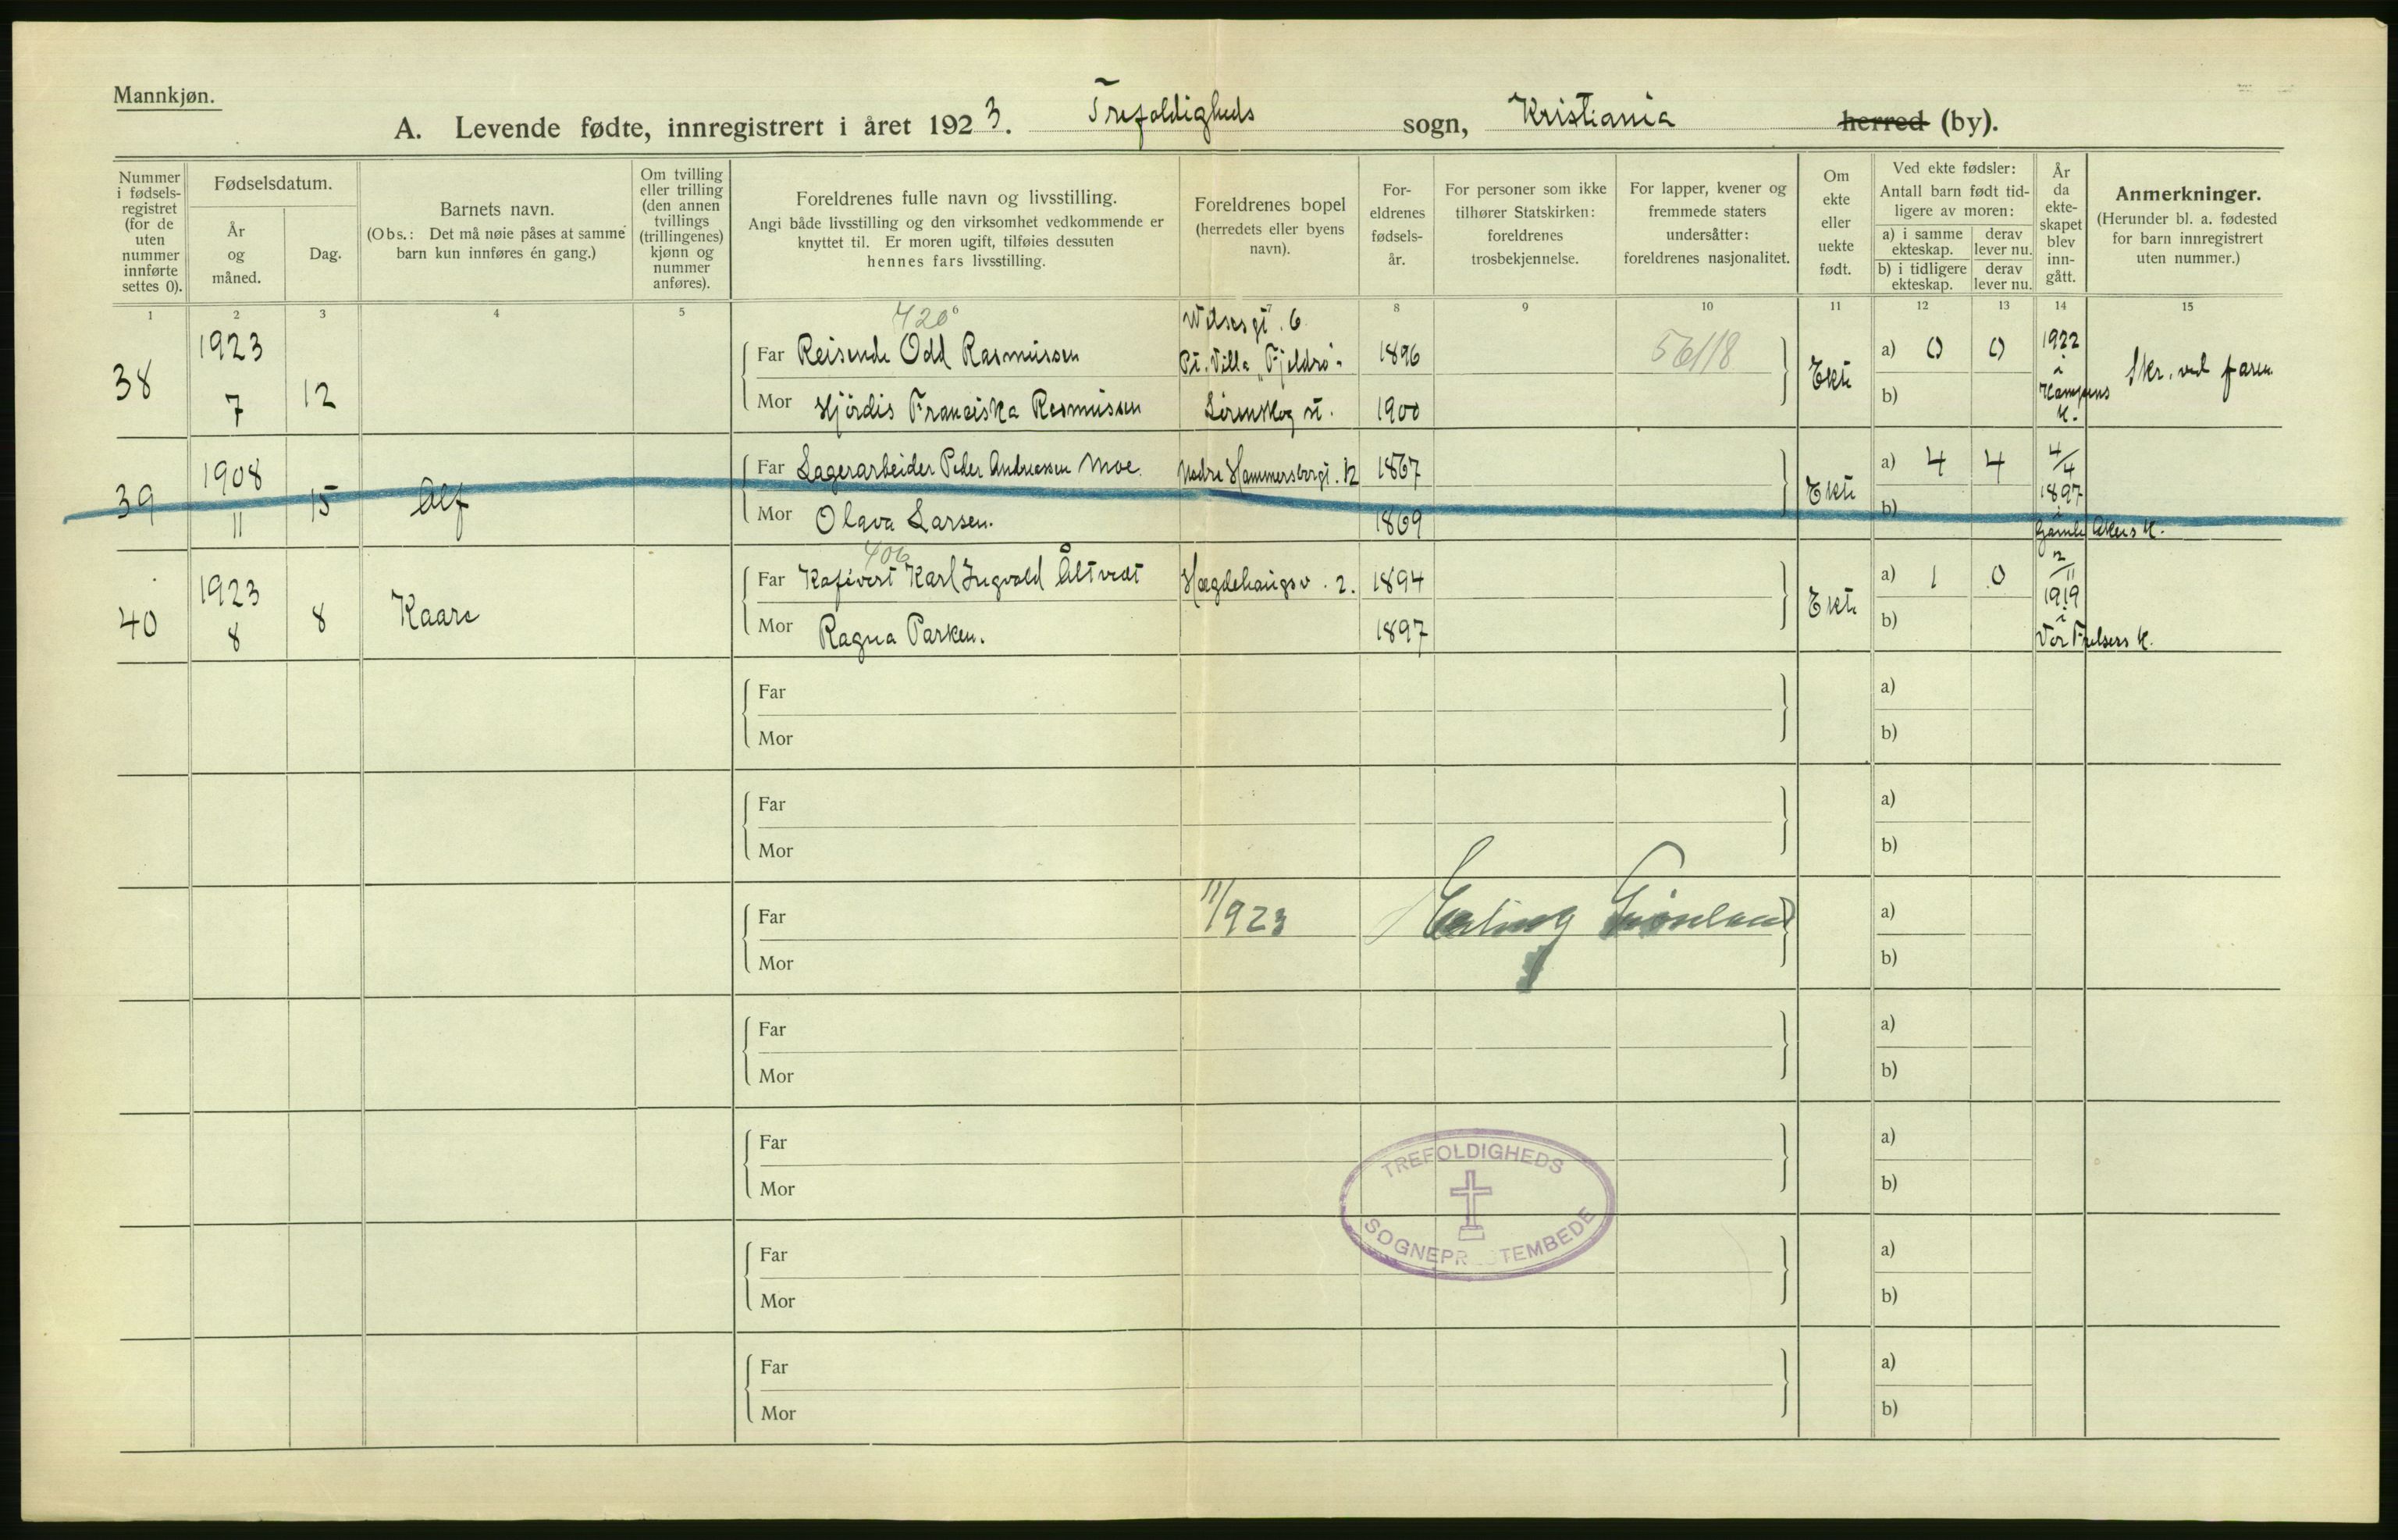 Mannkjøn.
A. Levende fødte, innregistrert i året 1923. Trefoldigheds sogn, Kristiania herred (by).
Nummer i fødsels-registret (for de uten nummer innførte settes 0).
Fødselsdatum.
År og måned.
Dag.
Barnets navn.
(Obs.: Det må nøie påses at samme barn kun innføres én gang.)
Om tvilling eller trilling (den annen tvillings (trillingenes) kjønn og nummer anføres).
Foreldrenes fulle navn og livsstilling.
Angi både livsstilling og den virksomhet vedkommende er knyttet til. Er moren ugift, tilføies dessuten hennes fars livsstilling.
Foreldrenes bopel (herredets eller byens navn).
For-eldrenes fødsels-år.
For personer som ikke tilhører Statskirken: foreldrenes trosbekjennelse.
For lapper, kvener og fremmede staters undersåtter: foreldrenes nasjonalitet.
Om ekte eller uekte født.
Ved ekte fødsler:
Antall barn født tid-ligere av moren:
a) i samme ekteskap.
derav lever nu.
b) i tidligere ekteskap.
derav lever nu.
År da ekte-skapet blev inn-gått.
Anmerkninger.
(Herunder bl. a. fødested for barn innregistrert uten nummer.)
1 2 3 4 5 8 9 10 11 12 13 14 15
420
38 1923 7 12
Far Reisende Odd Rasmussen
Mor Hjördis Franciska Rasmussen
gt. 6
Pt. Villa "Fjeldro"
st.
1896
1900
56118
Ekte
a) 0 0
b)
1922 i Kampens k.
Skr. ved faren
39 1908 11 15 Alf
Far Lagerarbeider Peder Andreassen Moe.
Mor Olava Larsen.
Nedre Hammersborggt. 12
1867
1869
Ekte
a) 4 4
b)
4/4 1897 i Gamle Akers k.
406
40 1923 8 8 Kaare
Far Kafévert Karl Ingvald Åltvedt
Mor Ragna Parken.
Hægdehaugsv. 2.
1894
1897
Ekte
a) 1 0
b)
2/11 1919 i Vor Frelsers k.
Far a)
Mor b)
Far a)
Mor b)
Far 11/923 Erling Grönland a)
Mor b)
Far a)
Mor b)
Far a)
Mor b)
TREFOLDIGHEDS
SOGNEPR TEMBEDE
Far a)
Mor b)
Far a)
Mor b)